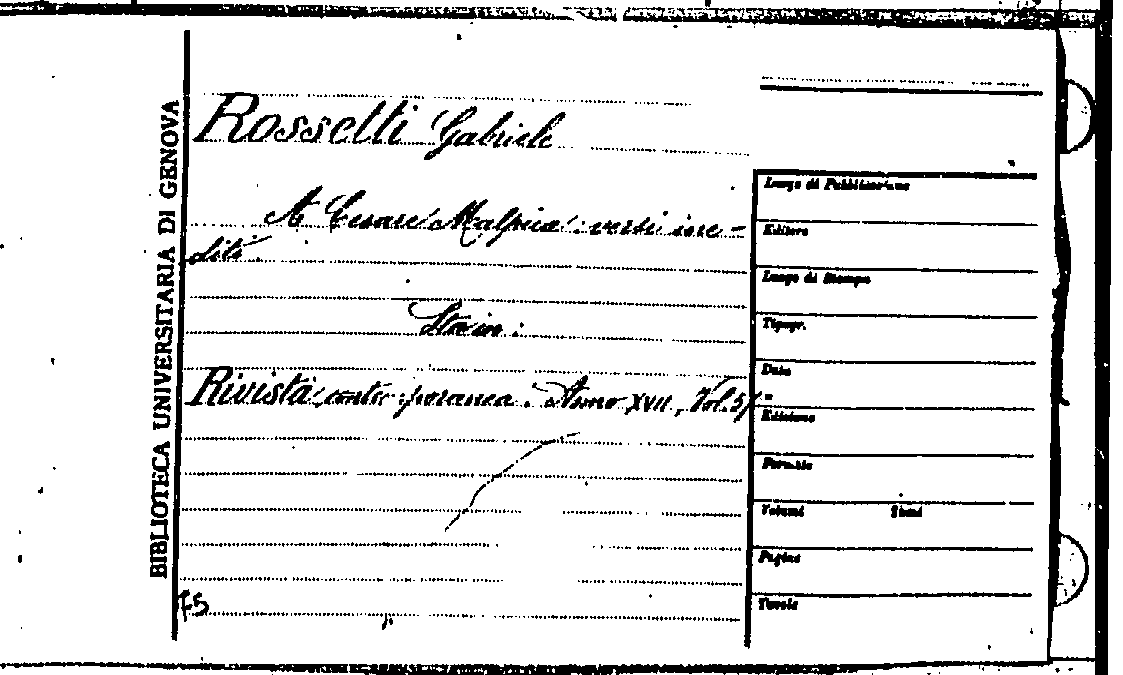 BIBLIOTECA UNIVERSITARIA DI GENOVA
Rossetti Gabriele
A Cesare Malpica: versi ine-
diti.
Sta in:
Rivista contemporanea. Anno XVII, Vol. 57.º
75
Luogo di Pubblicazione
Editore
Luogo di Stampa
Tipogr.
Data
Edizione
Formato
Volumi
Pagine
Tavole